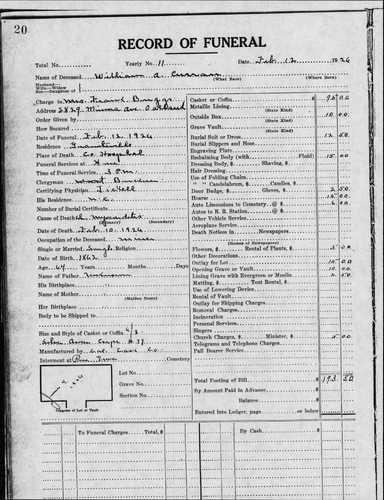 20
RECORD OF FUNERAL
Total No. Yearly No. 11 Date Feb. 12 1926
Name of Deceased William A. Curran
(What Race) (Where Born)
Husband—
Wife—Widow
Son—Daughter of
Charge to Mrs. Frank Briggs
Address 2829 Ave Oakland
Order Given by
How Secured
Date of Funeral Feb. 12, 1926
Residence
Place of Death Co Hospital
Funeral Services at
Time of Service 3 P.M.
Clergyman
Certifying Physician Hall
His Residence
Number of Burial Certificate
Cause of Death Myocarditis
(Primary) (Secondary)
Date of Death Feb. 10, 1926
Occupation of the Deceased Miner
Single or Married Single Religion
Date of Birth 1862
Age 64 Years Months Days
Name of Father Unknown
His Birthplace
Name of Mother
(Maiden Name)
Her Birthplace
Body to be Shipped to
Size and Style of Casket or Coffin 6/3
Manufactured by Co
Interment at Cemetery
Lot No.
Grave No.
Section No.
Diagram of Lot or Vault
Casket or Coffin 95.00
Metallic Lining
(State Kind)
Outside Box 10 00
(State Kind)
Grave Vault
(State Kind)
Burial Suit or Dress 12 50
Burial Slippers and Hose
Engraving Plate
Embalming Body (with Fluid) 15.00
Dressing Body, $ Shaving, $
Hair Dressing
Use of Folding Chairs
" " Candelabrum, $ Candles, $
Door Badge, $ Gloves, $ 2 50
Hearse 15.00
Auto Limousines to Cemetery @ $
Autos to R. R. Station @ $
Other Vehicle Service
Aeroplane Service
Death Notices in Newspapers
(Names of Newspapers)
Flowers, $ Rental of Plants, $
Other Decorations
Outlay for Lot 15 00
Opening Grave or Vault 10 00
Lining Grave with Evergreen or Muslin
Matting, $ Tent Rental, $
Use of Lowering Device
Rental of Vault
Outlay for Shipping Charges
Removal Charges
Incineration
Personal Services
Singers
Church Charges, $ Minister, $ 5 00
Telegrams and Telephone Charges
Pall Bearer Service
Total Footing of Bill $ 193.50
By Amount Paid in Advance
Balance $
Entered into Ledger, page or below
To Funeral Charges Total, $ By Cash $